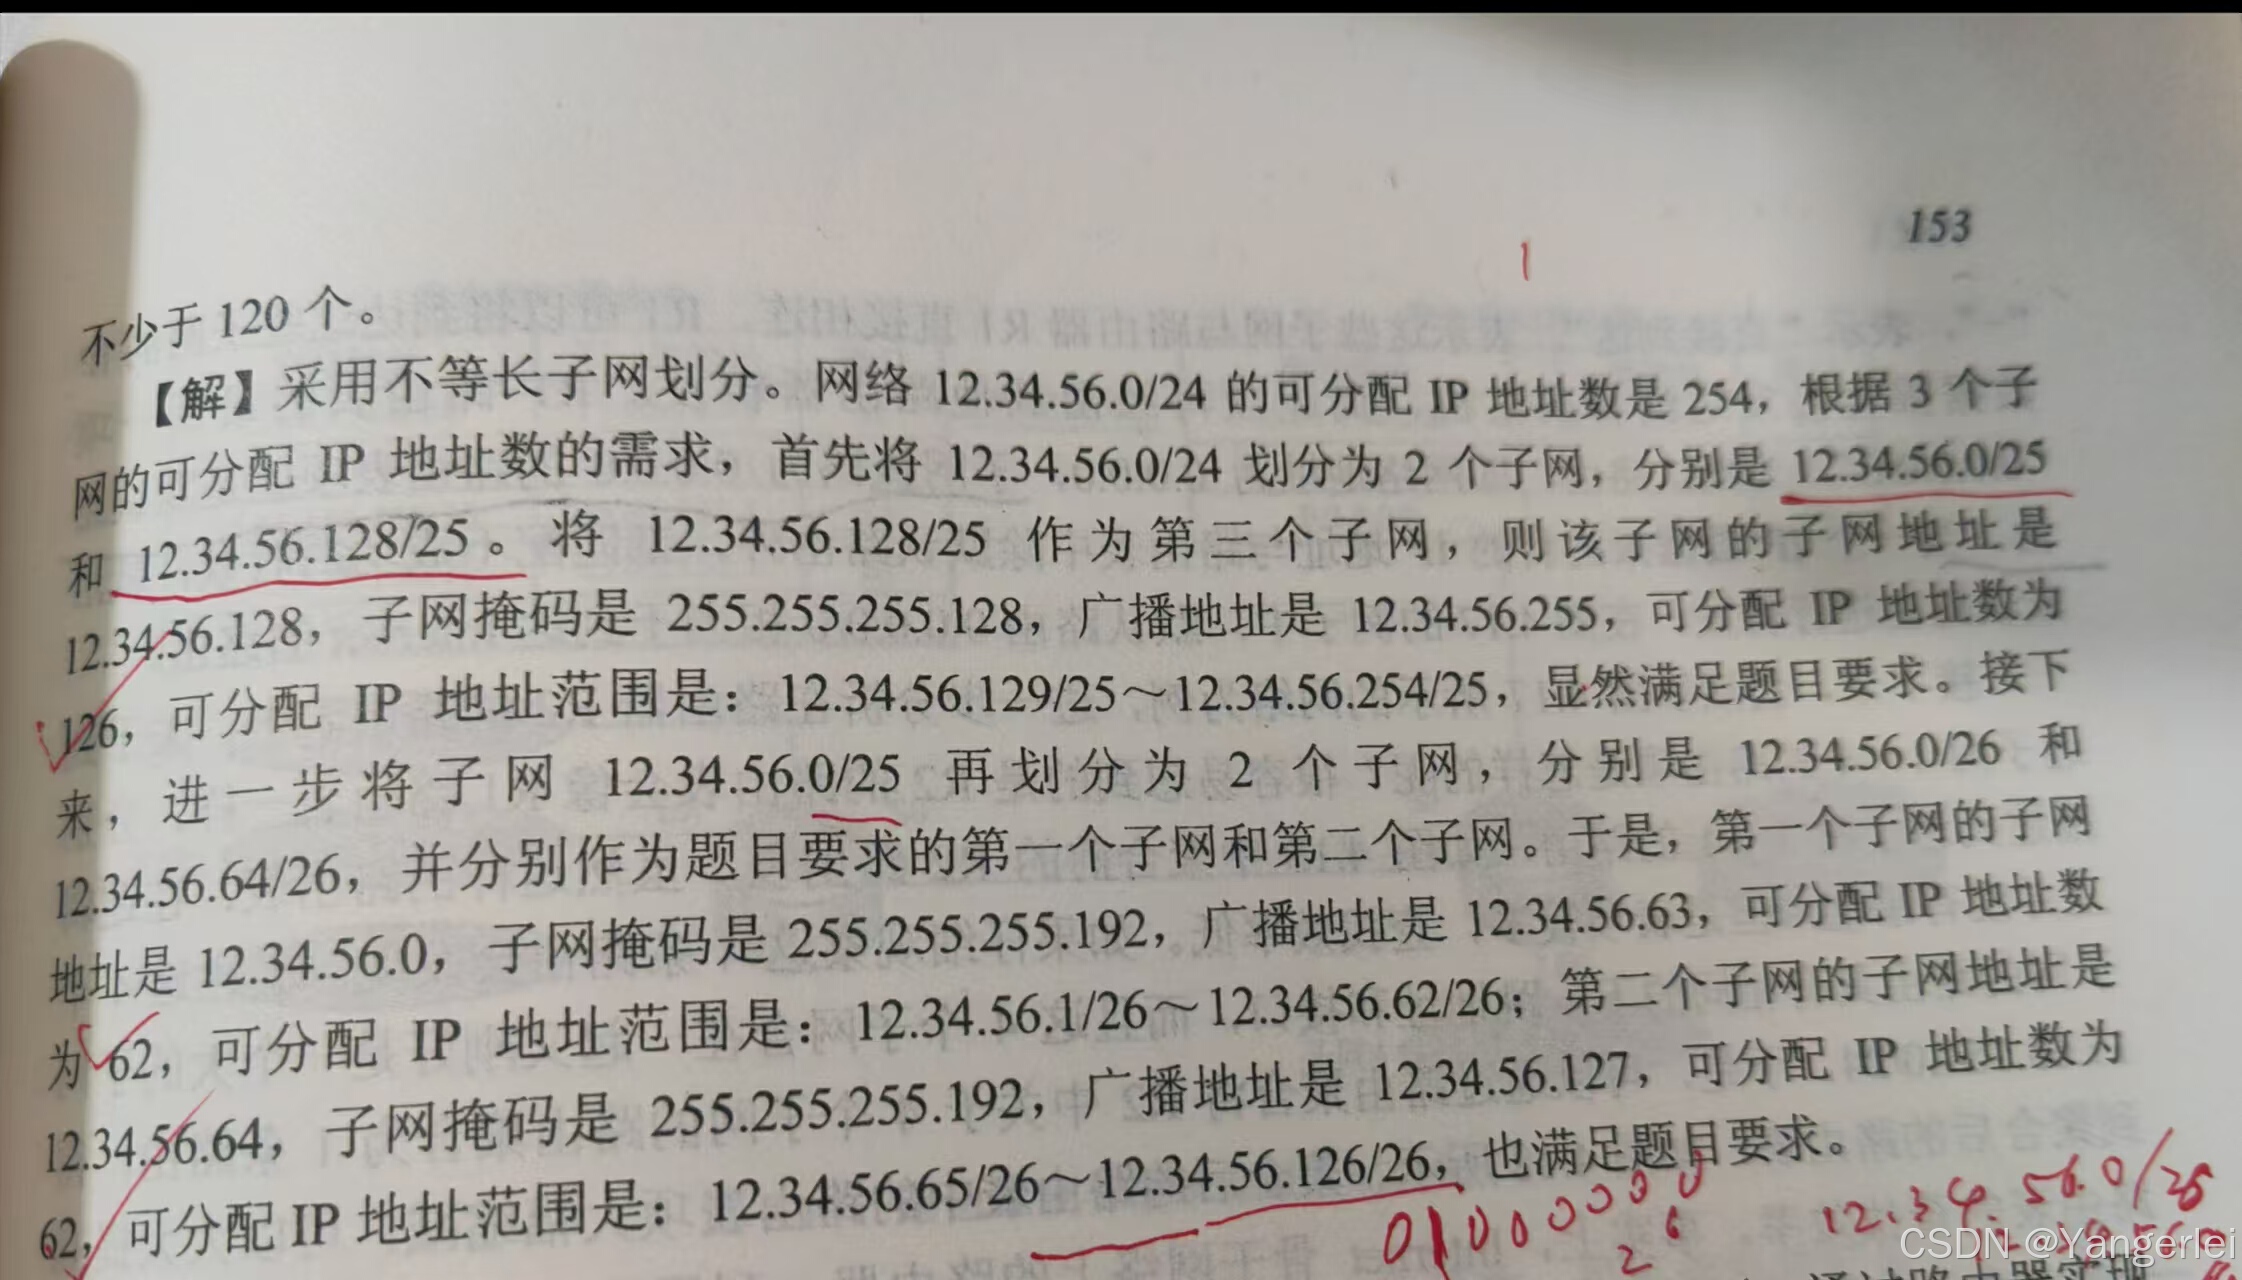 153
不少于 120 个。
【解】采用不等长子网划分。网络 12.34.56.0/24 的可分配 IP 地址数是 254，根据 3 个子
网的可分配 IP 地址数的需求，首先将 12.34.56.0/24 划分为 2 个子网，分别是 12.34.56.0/25
和 12.34.56.128/25。将 12.34.56.128/25 作为第三个子网，则该子网的子网地址是
12.34.56.128，子网掩码是 255.255.255.128，广播地址是 12.34.56.255，可分配 IP 地址数为
126，可分配 IP 地址范围是：12.34.56.129/25～12.34.56.254/25，显然满足题目要求。接下
来，进一步将子网 12.34.56.0/25 再划分为 2 个子网，分别是 12.34.56.0/26 和
12.34.56.64/26，并分别作为题目要求的第一个子网和第二个子网。于是，第一个子网的子网
地址是 12.34.56.0，子网掩码是 255.255.255.192，广播地址是 12.34.56.63，可分配 IP 地址数
为 62，可分配 IP 地址范围是：12.34.56.1/26～12.34.56.62/26；第二个子网的子网地址是
12.34.56.64，子网掩码是 255.255.255.192，广播地址是 12.34.56.127，可分配 IP 地址数为
62，可分配 IP 地址范围是：12.34.56.65/26～12.34.56.126/26，也满足题目要求。
01000000
26
12.34.56.0/25
CSDN @Yangerlei
通过路由器实现